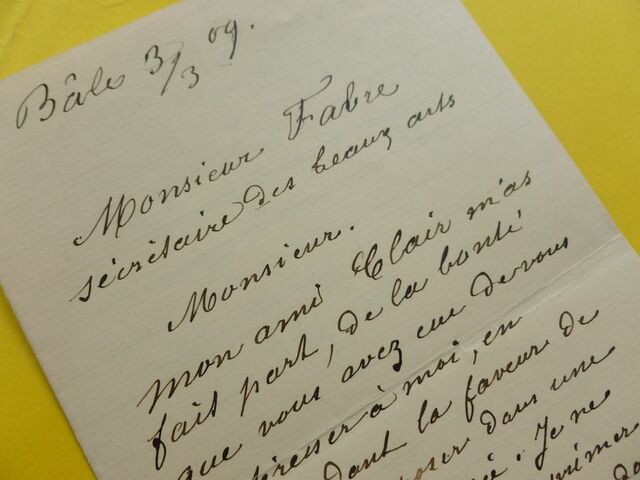 Bâle 3/3 09.
Monsieur Fabre
sécrétaire des beaux arts
Monsieur.
mon ami Clair m'as
fait part, de la bonté
que vous avez eue de vous
à moi, en
dont la faveur de
dans une
Je ne